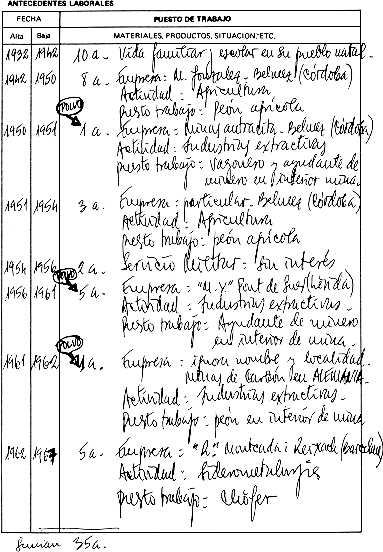 ANTECEDENTES LABORALES
FECHA PUESTO DE TRABAJO
Alta Baja MATERIALES, PRODUCTOS, SITUACION, ETC.
1932 1942 10 a. - Vida familiar, escolar en su pueblo natal.
1942 1950 8 a - Empresa: M. Gonzalez - Belmez (Córdoba)
Actividad: Agricultura
POLVO Puesto trabajo: peón agrícola
1950 1951 1 a - Empresa: Minas antracita - Belmez (Córdoba)
Actividad: Industrias extractivas
Puesto trabajo: Vagonero y ayudante de
minero en interior mina.
1951 1954 3 a - Empresa: particular - Belmez (Córdoba)
Actividad: Agricultura
Puesto trabajo: peón agrícola
1954 1956 2 a - Servicio Militar: sin interés
POLVO
1956 1961 5 a - Empresa: "M.Y." Pont de Suert (Lérida)
Actividad: Industrias extractivas -
Puesto trabajo: Ayudante de minero
POLVO en interior de mina.
1961 1962 1 a. Empresa: ignora nombre y localidad
minas de Carbón en ALEMANIA
Actividad: Industrias extractivas -
Puesto trabajo: peón en interior de mina
1962 1967 5 a - Empresa: "R." Montcada i Reixach (Barcelona)
Actividad: Siderometalurgia
Puesto trabajo: Chófer
35 a.